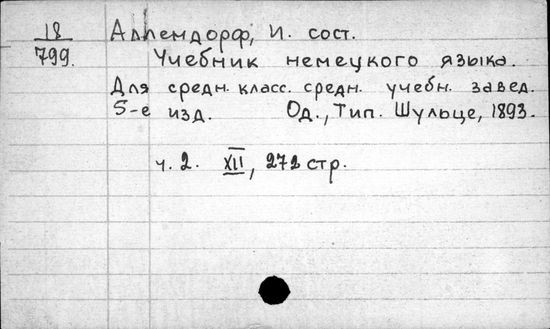 18
799.
Аллемдорф, И. сост.
Учебник немецкого языка.
Для средн. класс. средн. учебн. завед.
5-е изд. Од., Тип. Шульце, 1893.
ч. 2. XII, 272 стр.